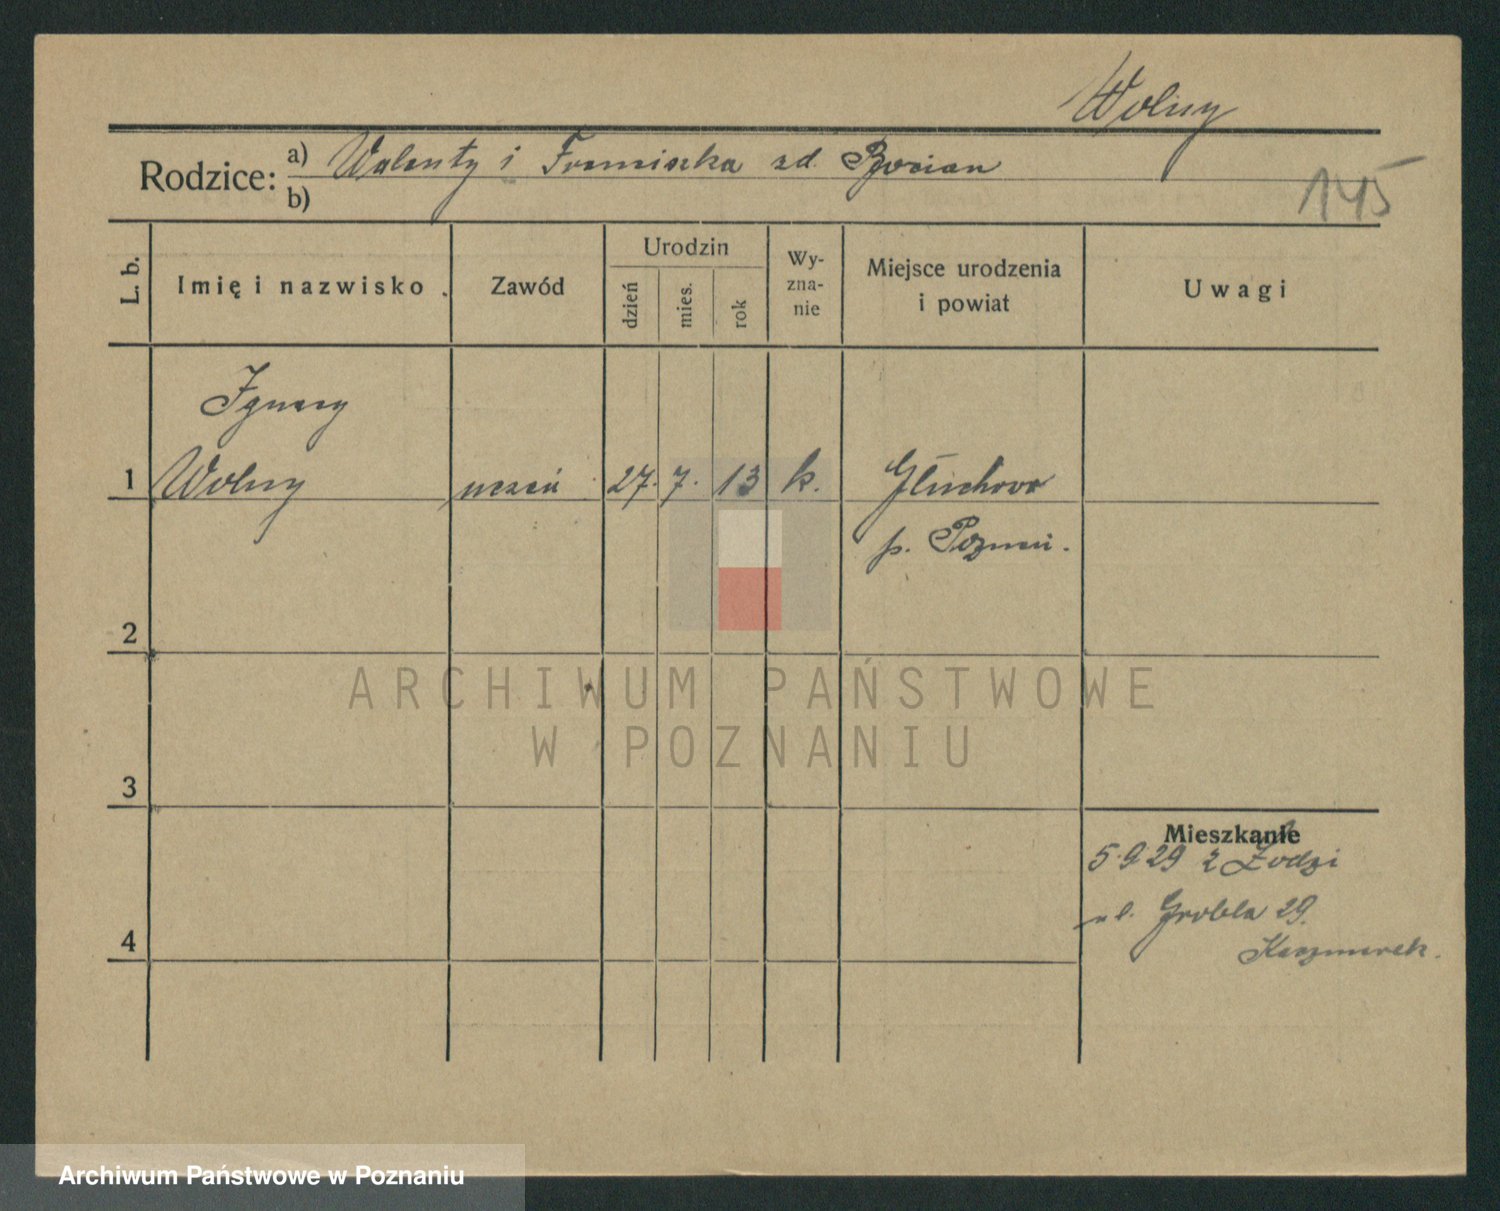 Wolny
Rodzice: a) Walenty i Franciszka zd. Bocian
b)
145
L. b.
Imię i nazwisko
Zawód
Urodzin
dzień
mies.
rok
Wy-
zna-
nie
Miejsce urodzenia
i powiat
Uwagi
Ignacy
1 Wolny uczeń 27. 7. 13 k. Głuchowo
p. Poznań.
2
ARCHIWUM PAŃSTWOWE
W POZNANIU
3
Mieszkanie
5.9.29 z Łodzi
4
ul. Grobla 29.
Kaczmarek.
Archiwum Państwowe w Poznaniu